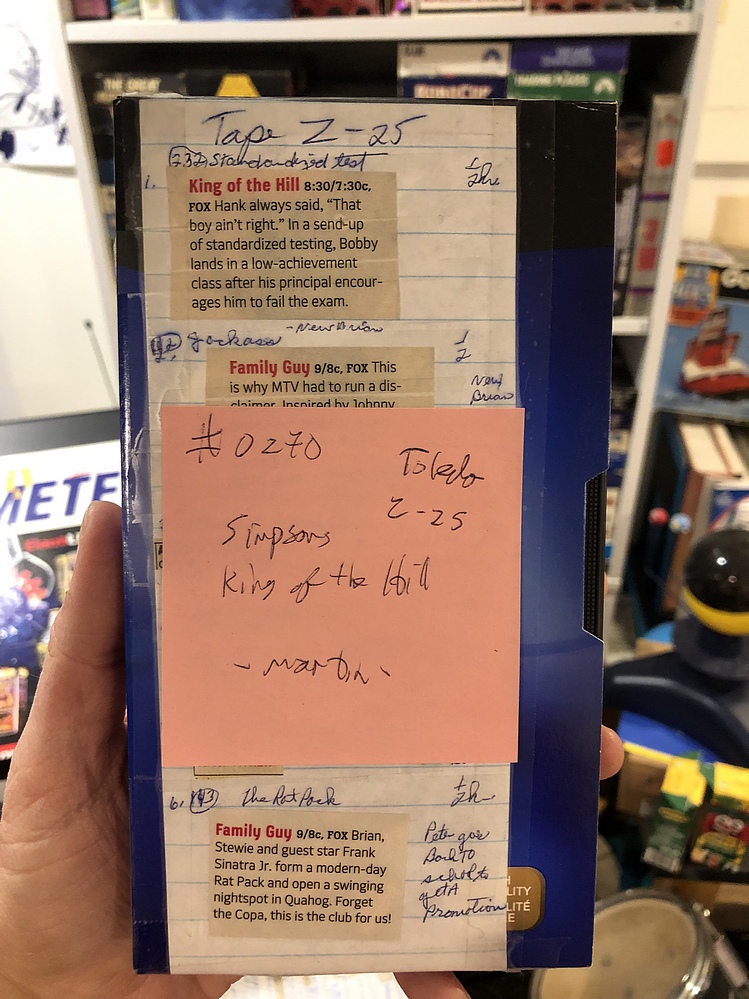 Tape Z-25
232) Standardized test
1.
1/2hr
King of the Hill 8:30/7:30c,
FOX Hank always said, "That
boy ain't right." In a send-up
of standardized testing, Bobby
lands in a low-achievement
class after his principal encour-
ages him to fail the exam.
-New Brian
Jackass
1/2
Family Guy 9/8c, FOX This
is why MTV had to run a dis-
claimer. Inspired by Johnny
New
Brian
#0270
Toledo
Z-25
Simpsons
King of the Hill
- Martin -
6. 143 The Rat Pack
1/2h
Family Guy 9/8c, FOX Brian,
Stewie and guest star Frank
Sinatra Jr. form a modern-day
Rat Pack and open a swinging
nightspot in Quahog. Forget
the Copa, this is the club for us!
Peter goes
Back TO
school to
get A
Promotion
METE
THE GREAT